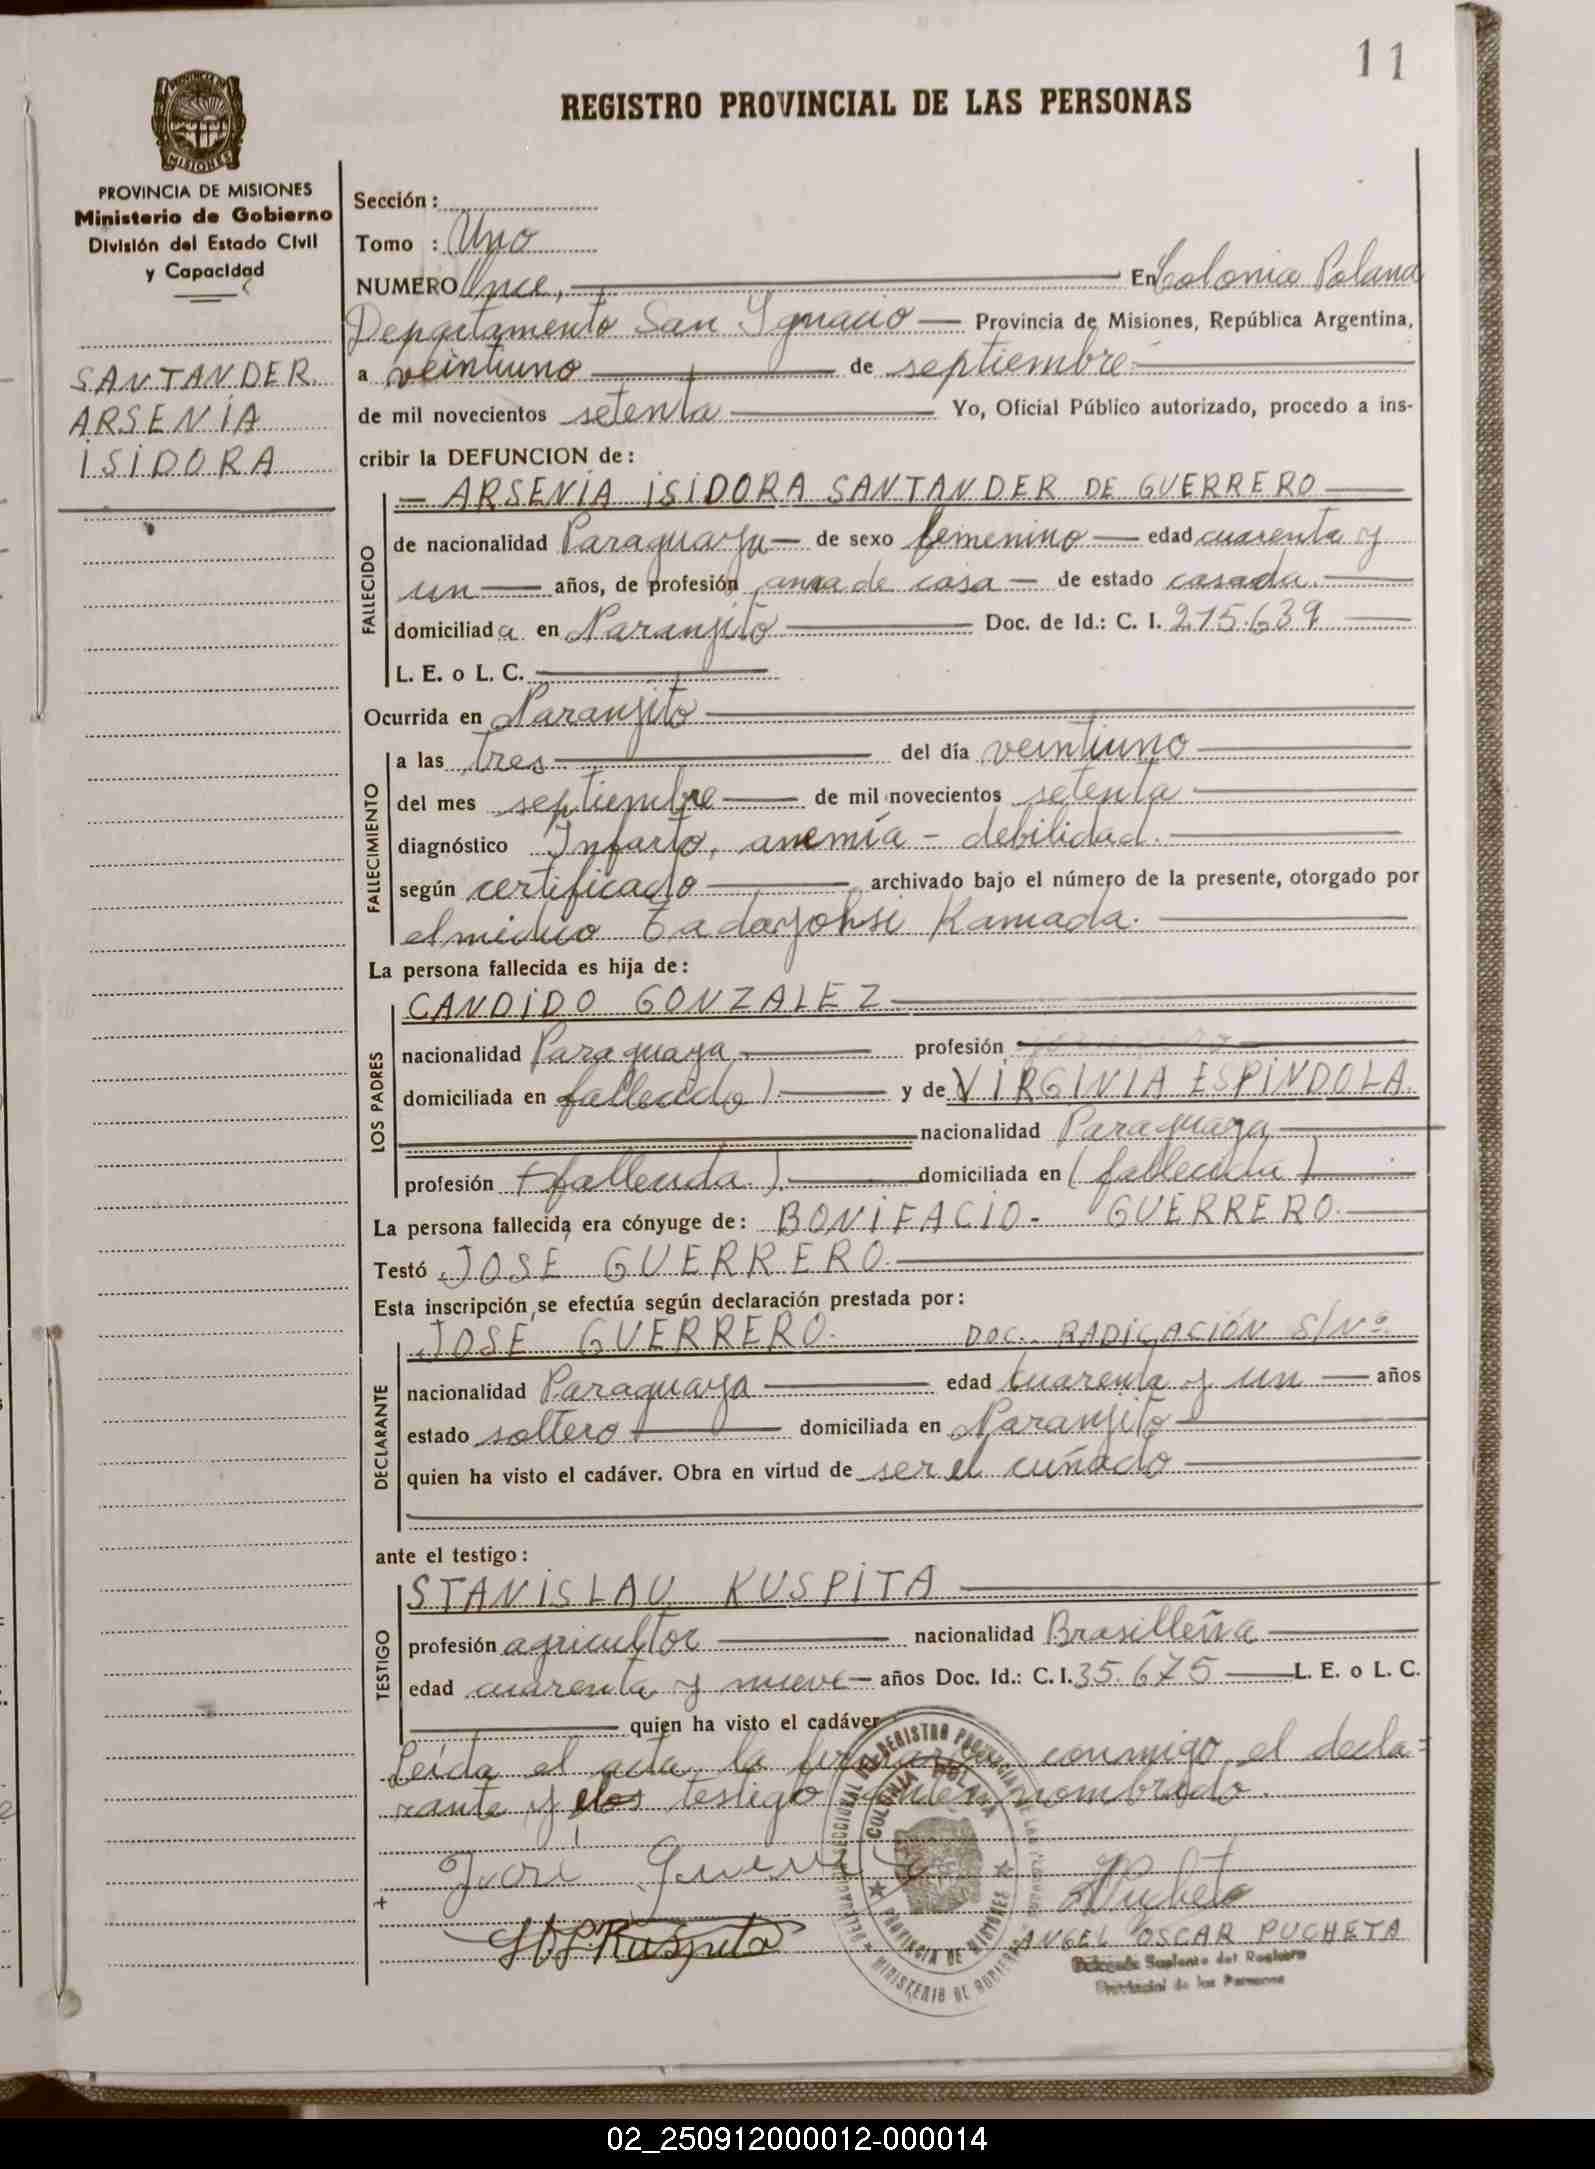 11
REGISTRO PROVINCIAL DE LAS PERSONAS
PROVINCIA DE MISIONES
Ministerio de Gobierno
División del Estado Civil
y Capacidad
SANTANDER
ARSENIA
ISIDORA
Sección:
Tomo : Uno
NUMERO Once, En Colonia Polana
Departamento San Ygnacio — Provincia de Misiones, República Argentina,
a veintiuno de septiembre
de mil novecientos setenta Yo, Oficial Público autorizado, procedo a ins-
cribir la DEFUNCION de:
— ARSENIA ISIDORA SANTANDER DE GUERRERO
FALLECIDO
de nacionalidad Paraguaya — de sexo femenino — edad cuarenta y
un — años, de profesión ama de casa — de estado casada.
domiciliada en Naranjito Doc. de Id.: C. I. 215.639
L. E. o L. C.
Ocurrida en Naranjito
FALLECIMIENTO
a las tres del día veintiuno
del mes septiembre — de mil novecientos setenta
diagnóstico Infarto, anemía - debilidad.
según certificado archivado bajo el número de la presente, otorgado por
el médico Tadayohsi Kamada.
La persona fallecida es hija de:
LOS PADRES
CANDIDO GONZALEZ
nacionalidad Paraguaya profesión
domiciliada en fallecido). y de VIRGINIA ESPINDOLA.
nacionalidad Paraguaya
profesión (fallecida). domiciliada en (fallecida)
La persona fallecida era cónyuge de: BONIFACIO - GUERRERO
Testó JOSE GUERRERO.
Esta inscripción se efectúa según declaración prestada por:
DECLARANTE
JOSÉ GUERRERO. DOC. RADICACIÓN S/Nº
nacionalidad Paraguaya edad cuarenta y un — años
estado soltero domiciliada en Naranjito
quien ha visto el cadáver. Obra en virtud de ser el cuñado
ante el testigo:
TESTIGO
STANISLAU KUSPITA
profesión agricultor nacionalidad Brasilleña
edad cuarenta y nueve — años Doc. Id.: C. I. 35.675 L. E. o L. C.
quien ha visto el cadáver
Leída el acta la firmaron conmigo el decla=
rante y el testigo antes nombrado.
José Guerrero
St. Kuspita
Pucheta
ANGEL OSCAR PUCHETA
Delegado Suplente del Registro
Provincial de las Personas
COLONIA POLANA
PROVINCIA DE MISIONES
02_250912000012-000014